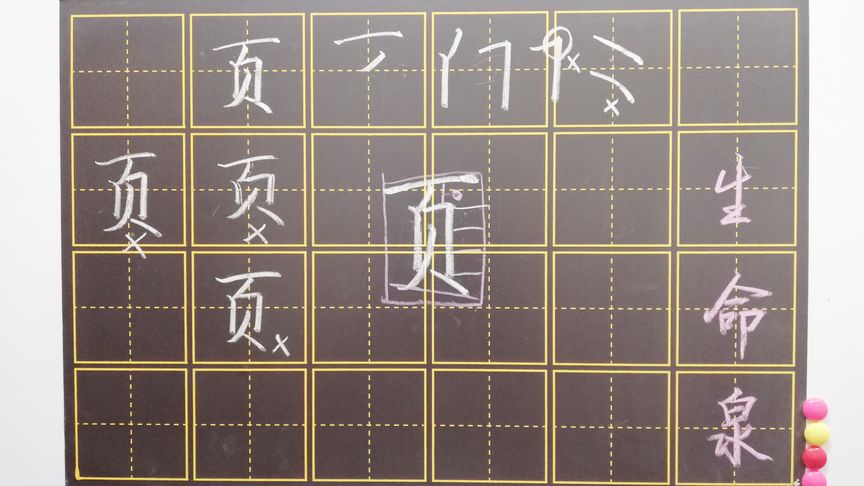 页
页 页 页
页
生
命
泉